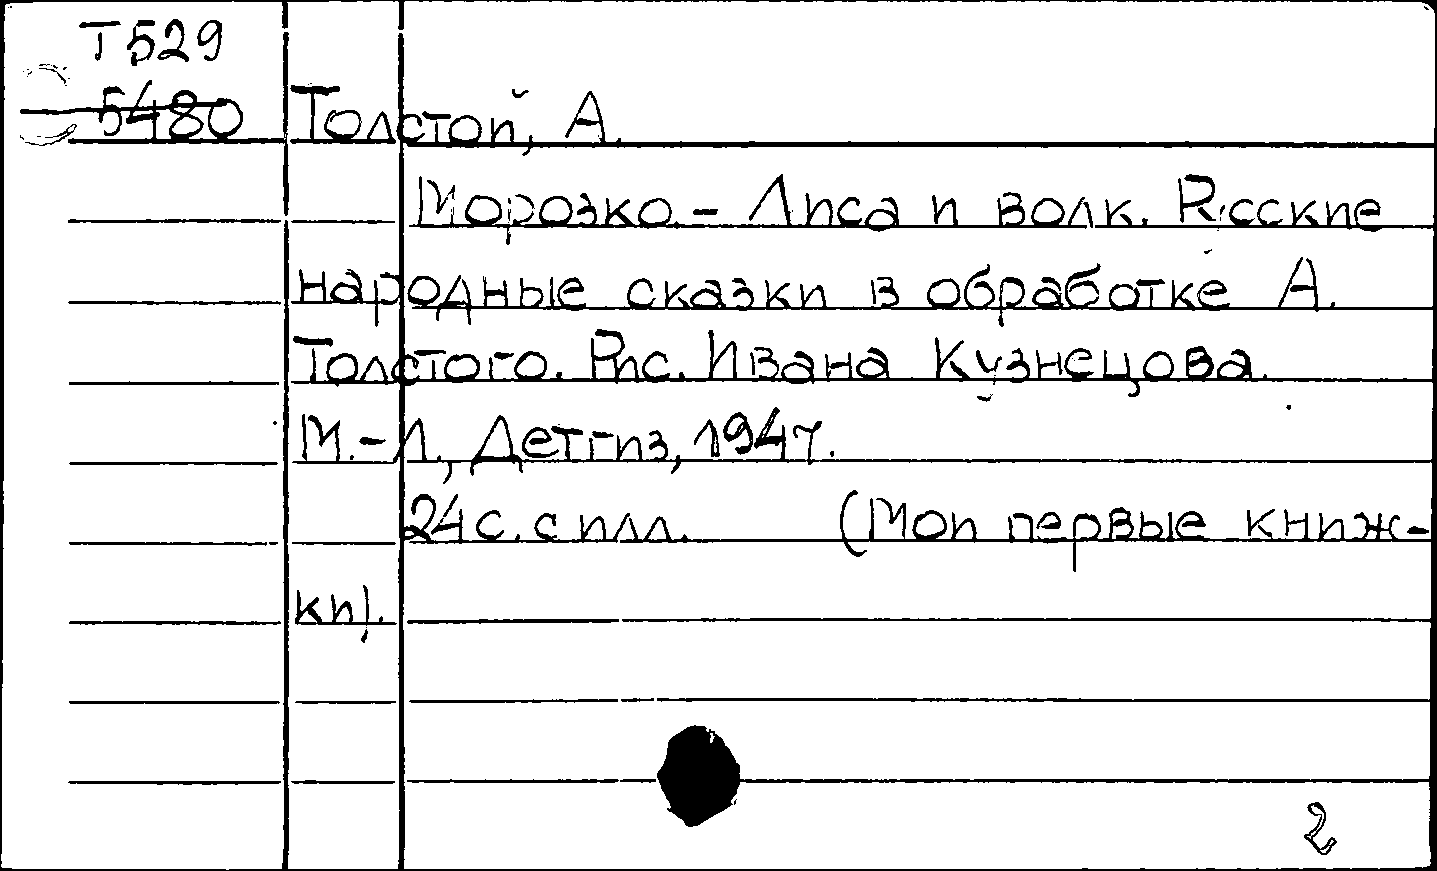 Т529
5480
Толстой, А.
Морозко.- Лиса и волк. Русские
народные сказки в обработке А.
Толстого. Рис. Ивана Кузнецова.
М.-Л., Детгиз, 1947.
24с. с илл. (Мои первые книж-
ки).
2